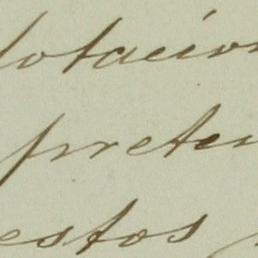 lotacion
preten
estos